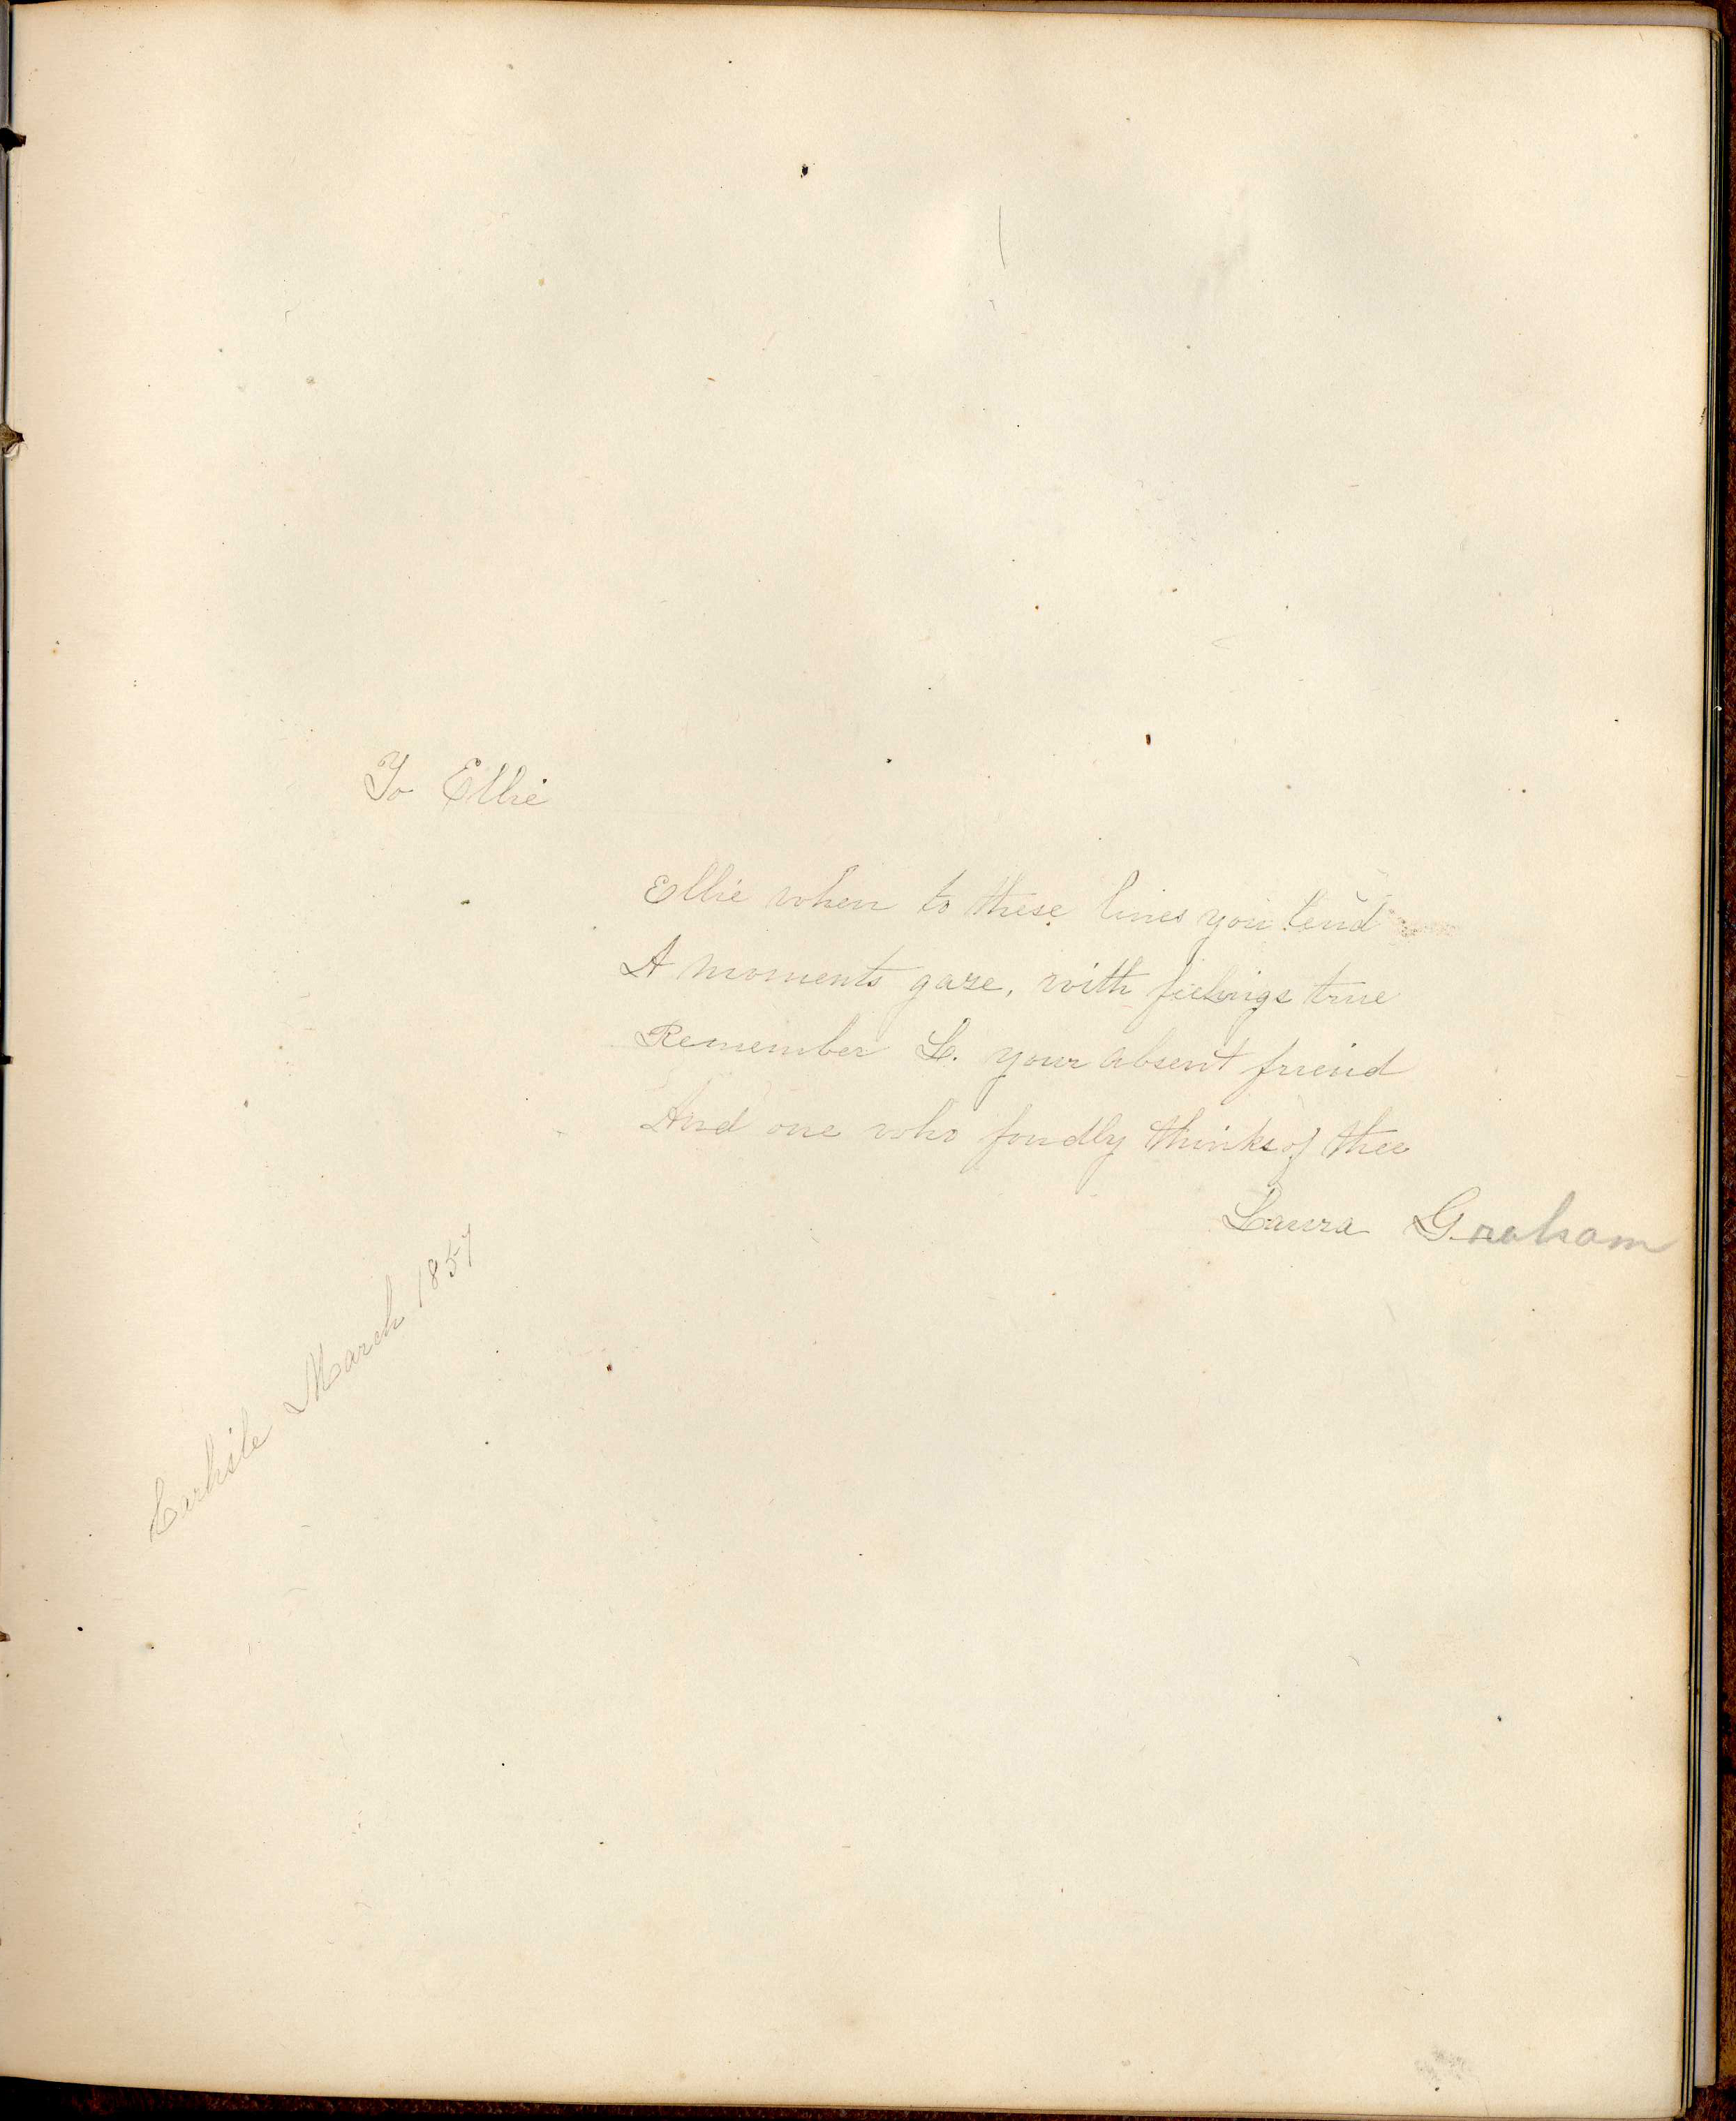 To Ellie
Ellie when to these lines you lend
A moments gaze, with feelings true
Remember L. your absent friend
And one who fondly thinks of thee
Laura Graham
Carlisle March 1857